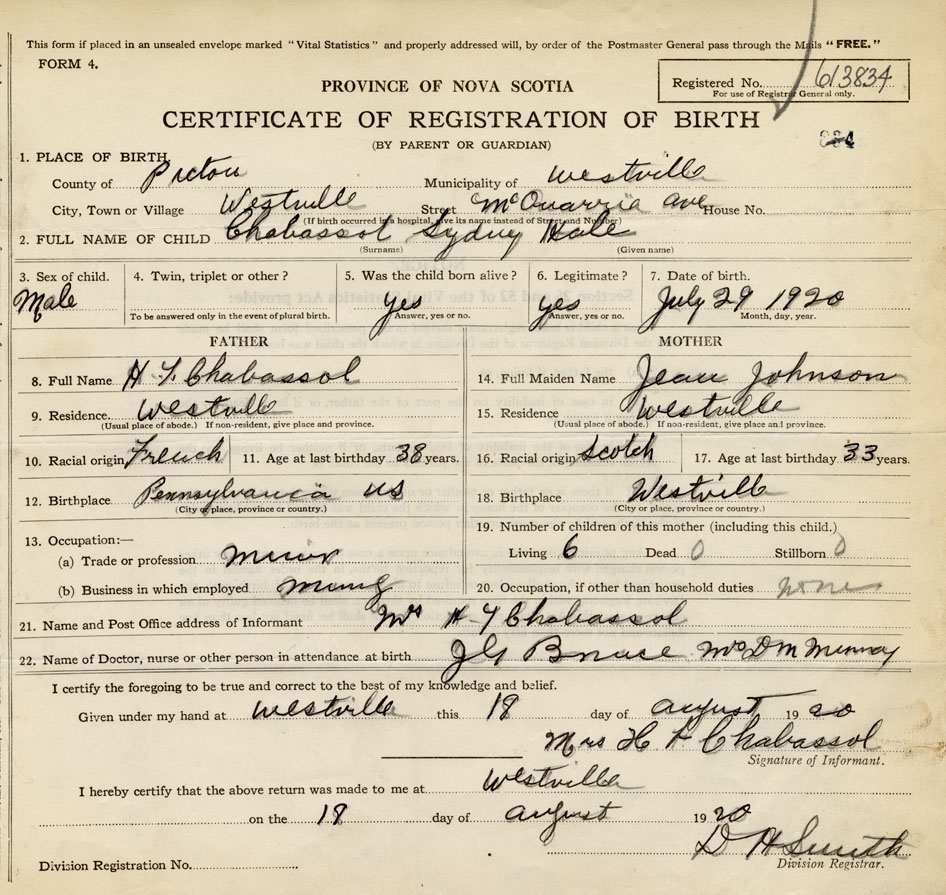 This form if placed in an unsealed envelope marked "Vital Statistics" and properly addressed will, by order of the Postmaster General pass through the Mails "FREE."
FORM 4.
PROVINCE OF NOVA SCOTIA
Registered No. 613834
For use of Registrar General only.
CERTIFICATE OF REGISTRATION OF BIRTH
(BY PARENT OR GUARDIAN)
1. PLACE OF BIRTH
County of Pictou Municipality of Westville
City, Town or Village Westville Street McQuarrie Ave House No.
(If birth occurred in a hospital, give its name instead of Street and Number)
2. FULL NAME OF CHILD Chabassol Sydney Hale
(Surname) (Given name)
3. Sex of child. 4. Twin, triplet or other? 5. Was the child born alive? 6. Legitimate? 7. Date of birth.
Male yes yes July 29 1920
To be answered only in the event of plural birth. Answer, yes or no. Answer, yes or no. Month, day, year.
FATHER MOTHER
8. Full Name H Y Chabassol 14. Full Maiden Name Jean Johnson
9. Residence Westville 15. Residence Westville
(Usual place of abode.) If non-resident, give place and province. (Usual place of abode.) If non-resident, give place and province.
10. Racial origin French 11. Age at last birthday 38 years. 16. Racial origin Scotch 17. Age at last birthday 33 years.
12. Birthplace Pennsylvania US 18. Birthplace Westville
(City or place, province or country.) (City or place, province or country.)
13. Occupation:— 19. Number of children of this mother (including this child.)
(a) Trade or profession Miner Living 6 Dead 0 Stillborn 0
(b) Business in which employed Mining 20. Occupation, if other than household duties none
21. Name and Post Office address of Informant Mrs H Y Chabassol
22. Name of Doctor, nurse or other person in attendance at birth J G Mrs D M Murray
I certify the foregoing to be true and correct to the best of my knowledge and belief.
Given under my hand at Westville this 18 day of August 1920
Mrs H Y Chabassol
Signature of Informant.
I hereby certify that the above return was made to me at Westville
on the 18 day of August 1920
D H Smith
Division Registrar.
Division Registration No.